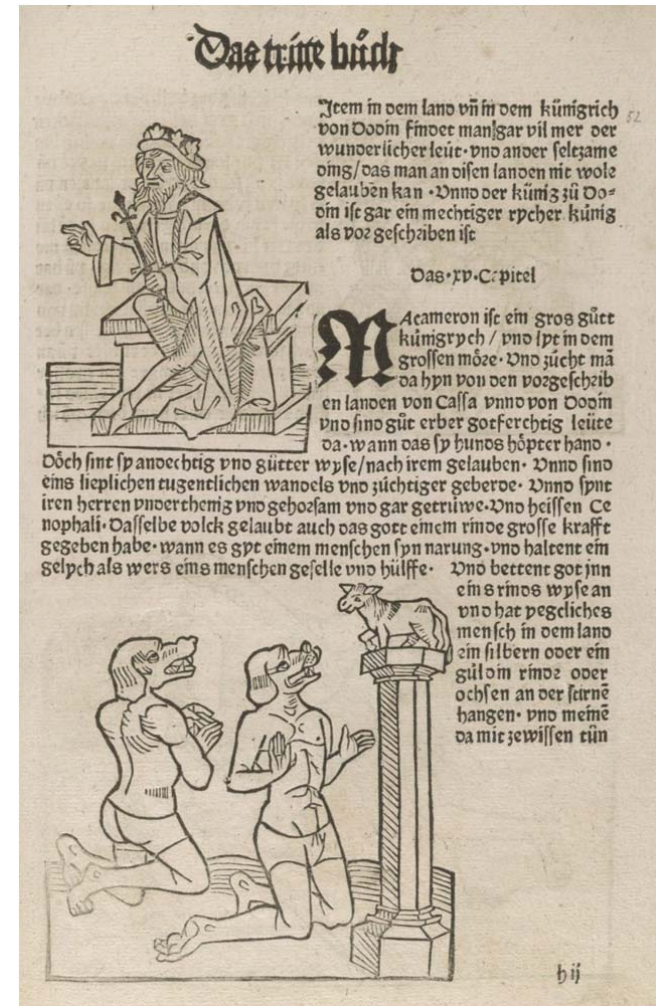 Das tritte bůch
Jtem in dem land vñ in dem künigrich
52
von Dodin findet man gar vil mer der
wunderlicher leüt· vnd ander seltzame
ding/das man an disen landen nit wole
gelauben kan ·Vnnd der künig zů Do⸗
din ist gar ein mechtiger rycher künig
als vor geschriben ist
Das·xv·Capitel
MAcameron ist ein gros gůtt
künigrych / vnd lyt in dem
grossen möre· Vnd zücht mā
da hyn von den vorgeschrib
en landen von Caffa vnnd von Dodin
vnd sind gůt erber gotferchtig leüte
da· wann das sy hunds höpter hand ·
Döch sint sy andechtig vnd gůtter wyse/nach irem gelauben· Vnnd sind
eins lieplichen tugentlichen wandels vnd züchtiger geberde· Vnnd synt
iren herren vnderthenig vnd gehorsam vnd gar getrüwe·Vnd heissen Ce
nophali· Dasselbe volck gelaubt auch das gott einem rinde grosse krafft
gegeben habe· wann es gyt einem menschen syn narung·vnd haltent ein
gelych als wers eins menschen geselle vnd hülffe· Vnd bettent got jnn
eins rinds wyse an
vnd hat yegeliches
mensch in dem land
ein silbern oder ein
güldin rinde oder
ochsen an der stirnē
hangen· vnd meinē
da mit ze wissen tůn
h ij